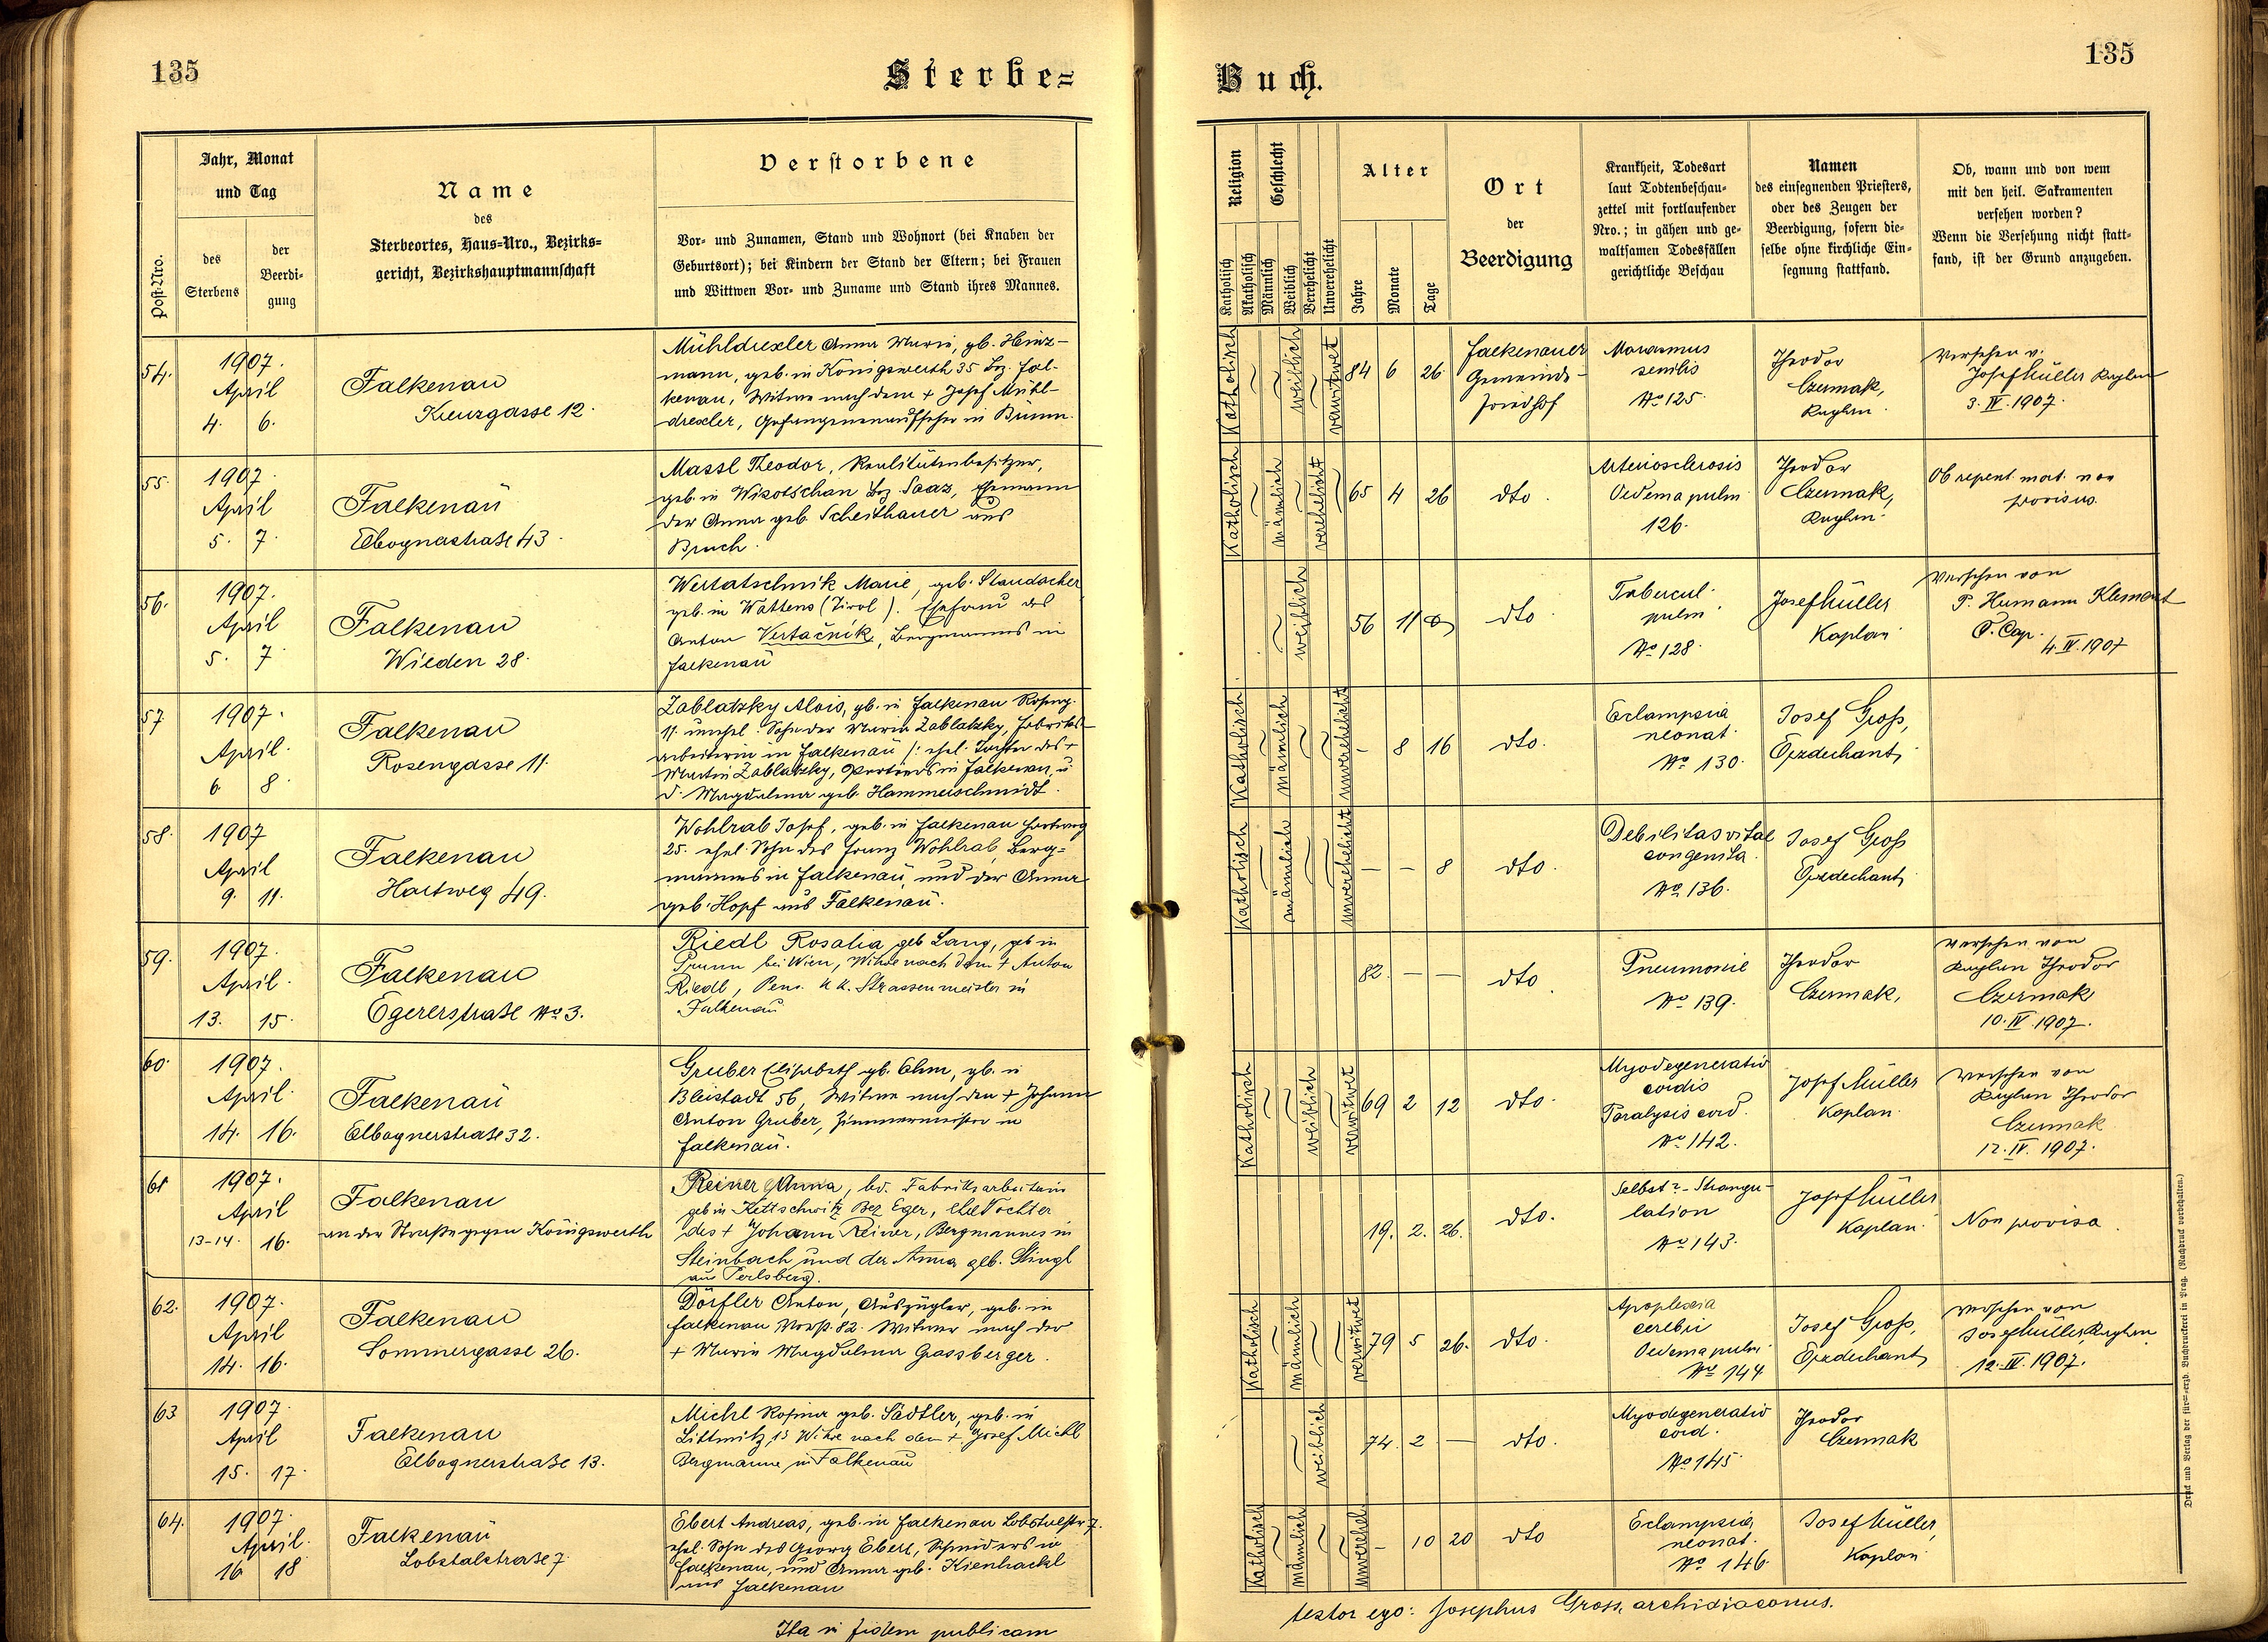 135
Sterbe=
Buch.
135
Post-Nro.
Jahr, Monat
und Tag
des
Sterbens
der
Beerdi-
gung
Name
des
Sterbeortes, Haus=Nro., Bezirks=
gericht, Bezirkshauptmannschaft
Verstorbene
Vor- und Zunamen, Stand und Wohnort (bei Knaben der
Geburtsort); bei Kindern der Stand der Eltern; bei Frauen
und Wittwen Vor- und Zuname und Stand ihres Mannes.
Religion
Katholisch
Akatholisch
Geschlecht
Männlich
Weiblich
Verehelicht
Unverehelicht
Alter
Jahre
Monate
Tage
Ort
der
Beerdigung
Krankheit, Todesart
laut Todtenbeschau-
zettel mit fortlaufender
Nro.; in gähen und ge-
waltsamen Todesfällen
gerichtliche Beschau
Namen
des einsegnenden Priesters,
oder des Zeugen der
Beerdigung, sofern die-
selbe ohne kirchliche Ein-
segnung stattfand.
Ob, wann und von wem
mit den heil. Sakramenten
versehen worden?
Wenn die Versehung nicht statt-
fand, ist der Grund anzugeben.
54.
1907.
April
4. 6.
Falkenau
Kreuzgasse 12.
Mühldrexler Anna Maria, gb. Heinz-
mann, geb. in Königswerth 35 Bez. Fal-
kenau, Witwe nach dem + Josef Mühl-
drexler, Gefangenenaufseher in
Katholisch
weiblich
verwitwet
84 6 26
Falkenauer
Gemeinde-
friedhof
Marasmus
senilis
No 125.
Theodor
Czermak,
Kaplan.
Versehen v.
Josef Müller Kaplan
3. IV. 1907.
55.
1907.
April
5. 7.
Falkenau
Elbognerstraße 43.
Massl Theodor, Realitätenbesitzer,
geb. in Wikotschan Bez. Saaz, Ehemann
der Anna geb. Scheithauer aus
Bruch.
Katholisch
männlich
verehelicht
65 4 26
dto.
Arteriosclerosis
Oedema pulm
126.
Theodor
Czermak,
Kaplan.
Ob repent. mort. non
provisus.
56.
1907.
April
5. 7.
Falkenau
Wieden 28.
Wertatschnik Marie, geb. Staudacher
geb. in Wattens (Tirol). Ehefrau des
Anton Vertačnik, Bergmannes in
Falkenau
weiblich
56 11
dto.
Tubercul.
pulm.
No 128.
Josef Müller
Kaplan
Versehen von
P. Hermann Klement
4. IV. 1907
57
1907.
April.
6 8.
Falkenau
Rosengasse 11.
Zablatzky Alois, gb. in Falkenau Roseng.
11. unehel. Sohn der Maria Zablatzky, Fabriks-
arbeiterin in Falkenau /: ehel. Tochter des +
Martin Zablatzky, Portiers in Falkenau, u
d. Magdalena geb. Hammerschmidt.
Katholisch.
männlich
unverehelicht
– 8 16
dto.
Eclampsia
neonat.
No 130.
Josef Groß,
Erzdechant,
58.
1907
April
9. 11.
Falkenau
Hartweg 49.
Wohlrab Josef, geb. in Falkenau Hartweg
25. ehel. Sohn des Franz Wohlrab, Berg=
mannes in Falkenau, und der Anna
geb. Hopf aus Falkenau.
Katholisch
männlich
unverehelicht
– – 8
dto.
Debilitas vital
congenita.
No 136.
Josef Groß
Erzdechant,
59.
1907.
April.
13. 15.
Falkenau
Egererstraße No 3.
Riedl Rosalia geb Lang, geb in
bei Wien, Witwe nach dem + Anton
Riedl, Pens. k k. Strassenmeister in
Falkenau
82. – –
dto.
Pneumonie
No 139.
Theodor
Czermak,
Versehen von
Kaplan Theodor
Czermak
10. IV. 1907.
60.
1907.
April.
14. 16.
Falkenau
Elbognerstraße 32.
Gruber Elisabeth gb. Ehm, gb. in
Bleistadt 56, Witwe nach dem + Johann
Anton Gruber, Zimmermeister in
Falkenau.
Katholisch
weiblich
verwitwet
69 2 12
dto.
Myodegeneratio
cordis
Paralysis cord.
No 142.
Josef Müller
Kaplan.
Versehen von
Kaplan Theodor
Czermak
12. IV. 1907.
61
1907.
April
13-14. 16.
Falkenau
an der Straße gegen Königswerth
Reiner Anna, led. Fabriksarbeiterin
geb in Kettschwitz Bez Eger, ehel Tochter
des + Johann Reiner, Bergmannes in
Steinbach und der Anna geb. Stingl
aus Perlsberg.
19. 2. 26.
dto.
Selbst - Strangu-
lation
No 143.
Josef Müller
Kaplan.
Non provisa.
62.
1907.
April
14. 16.
Falkenau
Sommergasse 26.
Dörfler Anton, Auszügler, geb. in
Falkenau 82. Witwer nach der
+ Maria Magdalena Grassberger.
Katholisch
männlich
verwitwet
79 5 26.
dto.
Apoplexia
cerebri
Oedema pulm.
No 144
Josef Groß,
Erzdechant,
Versehen von
Josef Müller, Kaplan
12. IV. 1907.
63
1907.
April
15. 17.
Falkenau
Elbognerstraße 13.
Michl Rosina geb. Sädtler, geb. in
Littmitz 13 Witwe nach dem + Josef Michl
Bergmanne in Falkenau
weiblich
74. 2 –
dto.
Myodegeneratio
cord.
No 145.
Theodor
Czermak
64.
1907.
April.
16 18
Falkenau
Lobstalstraße 7.
Ebert Andreas, geb. in Falkenau Lobstalstr 7.
ehel. Sohn des Georg Ebert, Schneiders in
Falkenau, und Anna geb. Kienhackl
aus Falkenau
Katholisch
männlich
unverehel.
– 10 20
dto
Eclampsia
neonat.
No 146.
Josef Müller,
Kaplan.
Ita in fidem publicam
testor ego: Josephus Gross, archidiaconus.
Druck und Verlag der für=erzb. Buchdruckerei in Prag. (Nachdruck vorbehalten.)